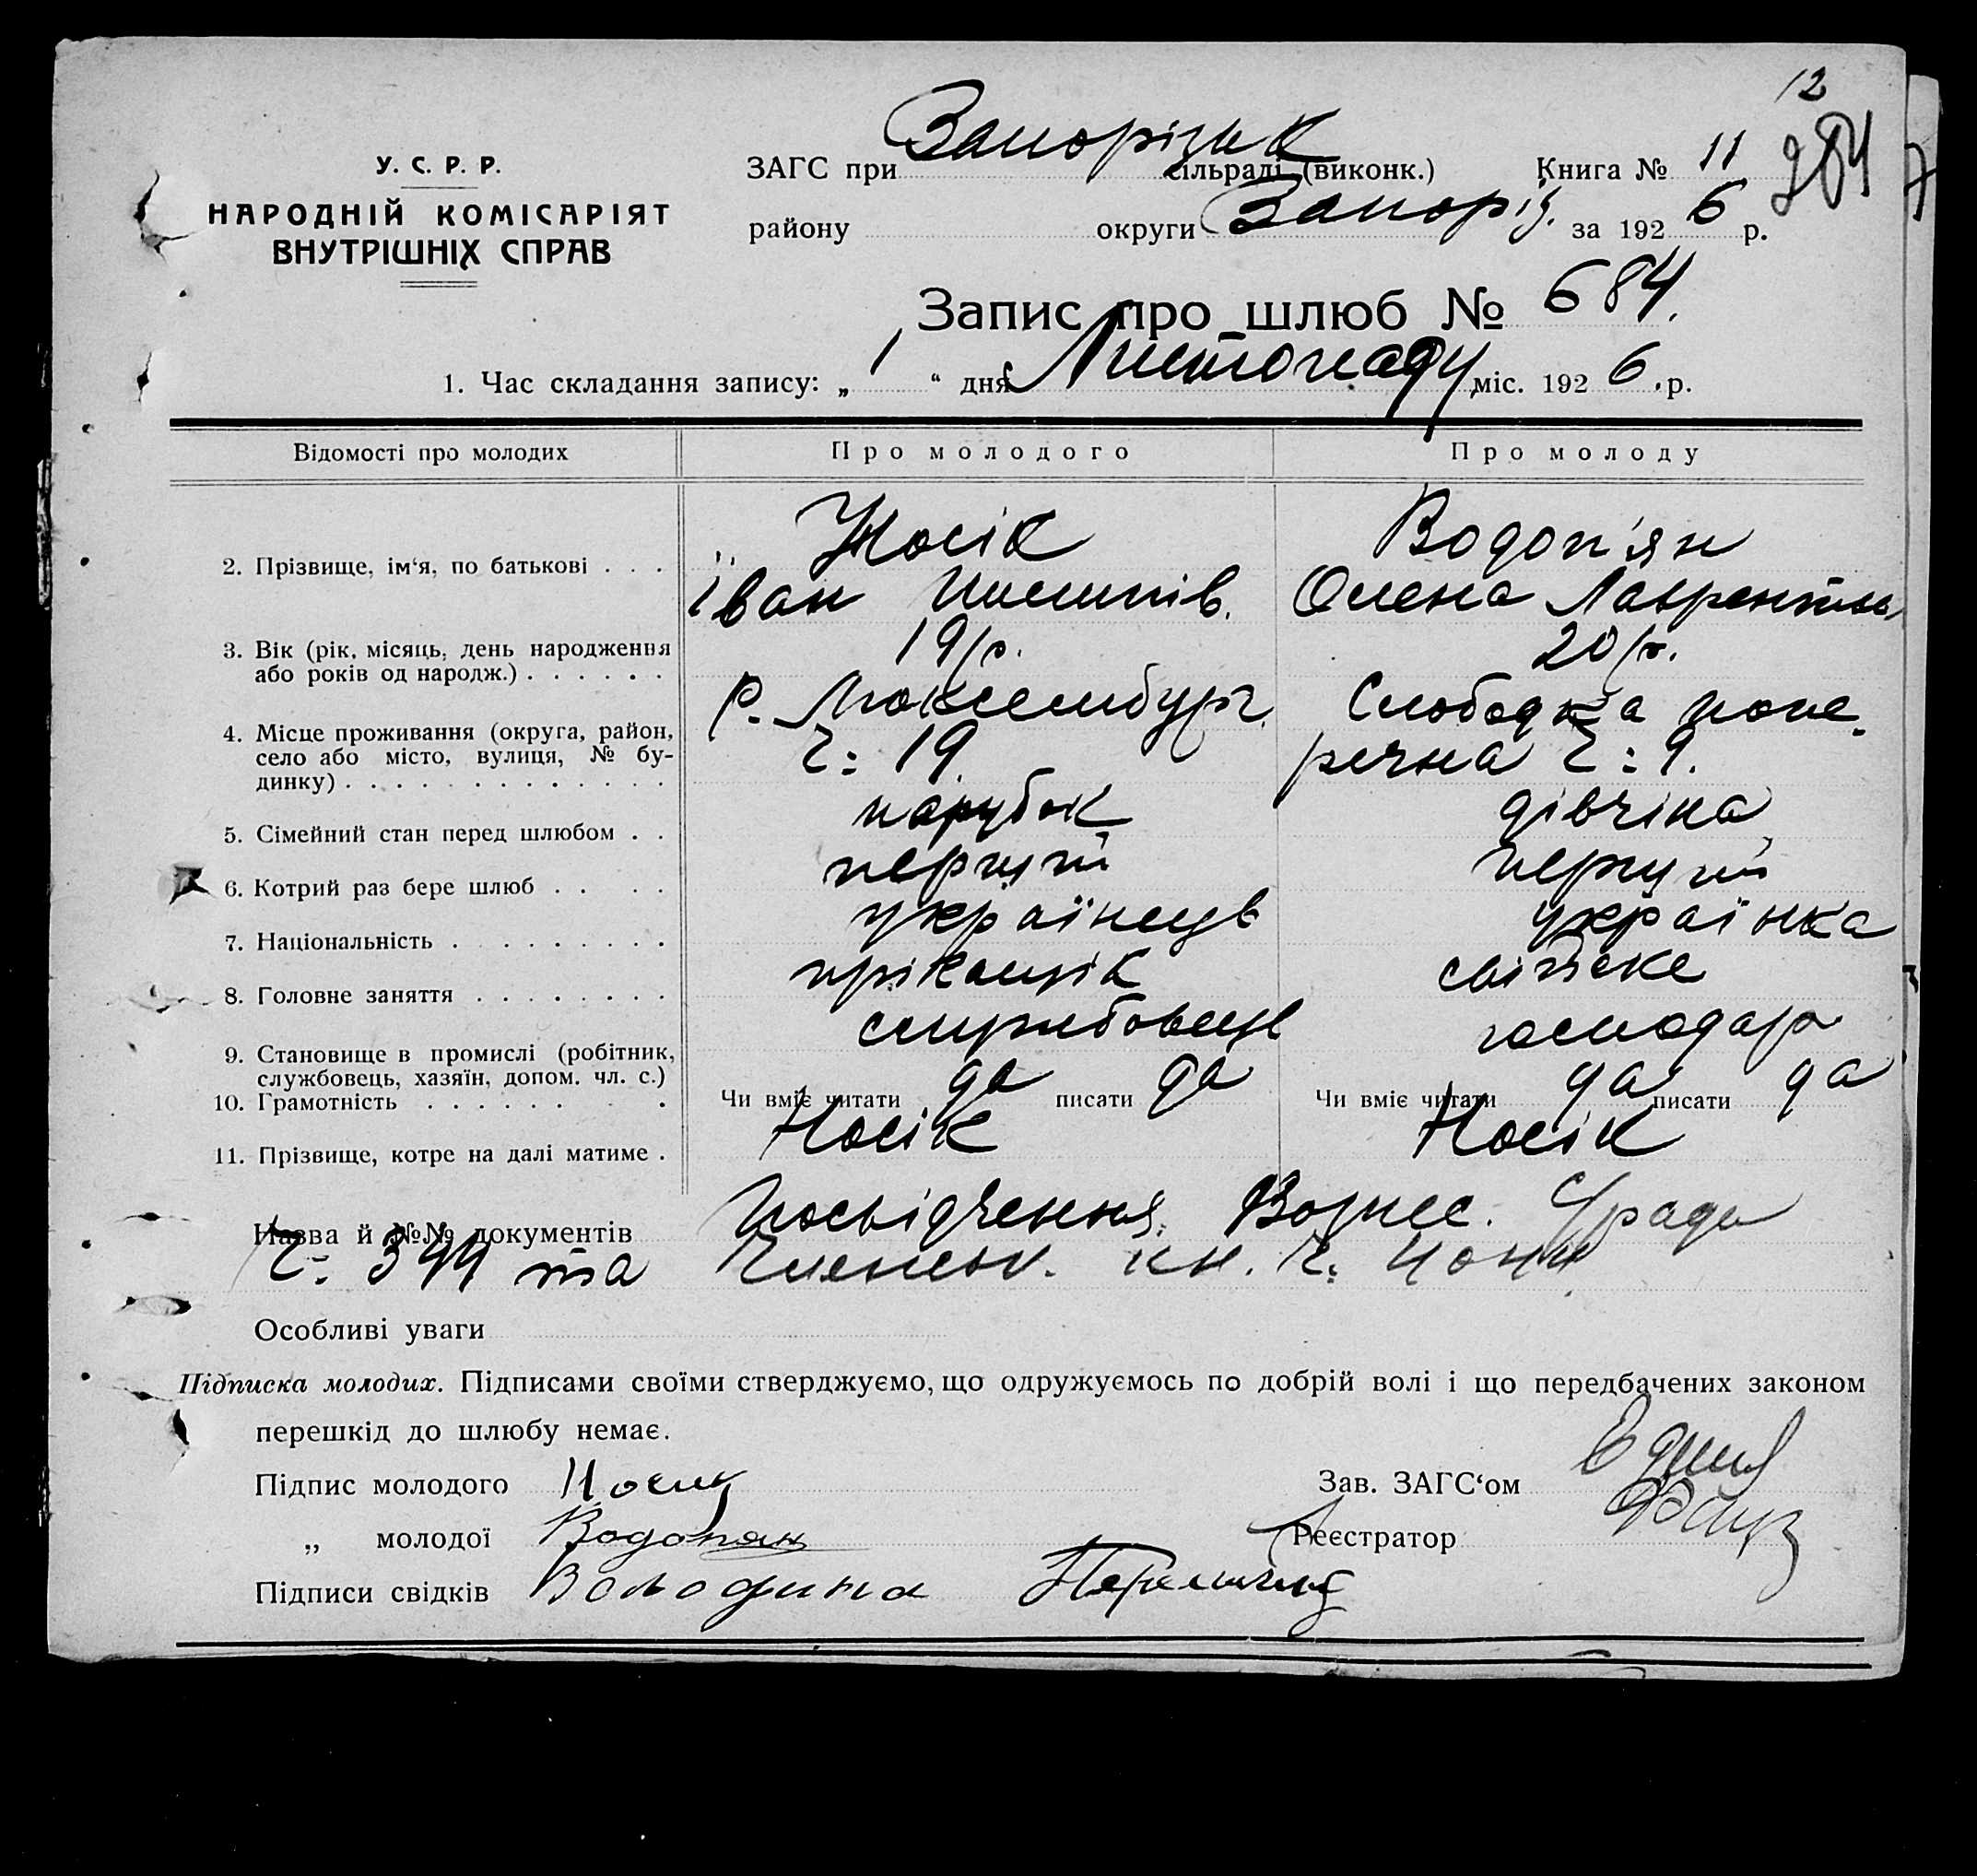 12
У. С. Р. Р.
НАРОДНІЙ КОМІСАРІЯТ
ВНУТРІШНІХ СПРАВ
ЗАГС при Запорізьк сільраді (виконк.) Книга № 11
284
району округи Запоріз. за 1926 р.
Запис про шлюб № 684.
1. Час складання запису: „1“ дня Листопаду міс. 1926. р.
Відомості про молодих Про молодого Про молоду
2. Прізвище, ім‘я, по батькові . . . Носік Водоп'ян
Іван Олена
3. Вік (рік, місяць, день народження 19/р. 20/р.
або років од народж.) . . . . . .
4. Місце проживання (округа, район, Р. Люксембург. Слободка попе-
село або місто, вулиця, № бу- ч: 19. речна ч: 9.
динку) . . . . . . . . . . . . .
5. Сімейний стан перед шлюбом . . парубок дівчіна
6. Котрий раз бере шлюб . . . . перший перший
7. Національність . . . . . . . . . українець українка
8. Головне заняття . . . . . . . . прікащік сільске
9. Становище в промислі (робітник, службовець господар
службовець, хазяїн, допом. чл. с.)
10. Грамотність . . . . . . . Чи вміє читати да писати да Чи вміє читати да писати да
11. Прізвище, котре на далі матиме . Носік Носік
Назва й №№ документів Посьвідчення Вознес. С/ради
ч: 344 та членськ. кн. ч:
Особливі уваги
Підписка молодих. Підписами своїми стверджуємо, що одружуємось по добрій волі і що передбачених законом
перешкід до шлюбу немає.
Підпис молодого Носик Зав. ЗАГС‘ом
„ молодої Водопян Реєстратор
Підписи свідків Володина